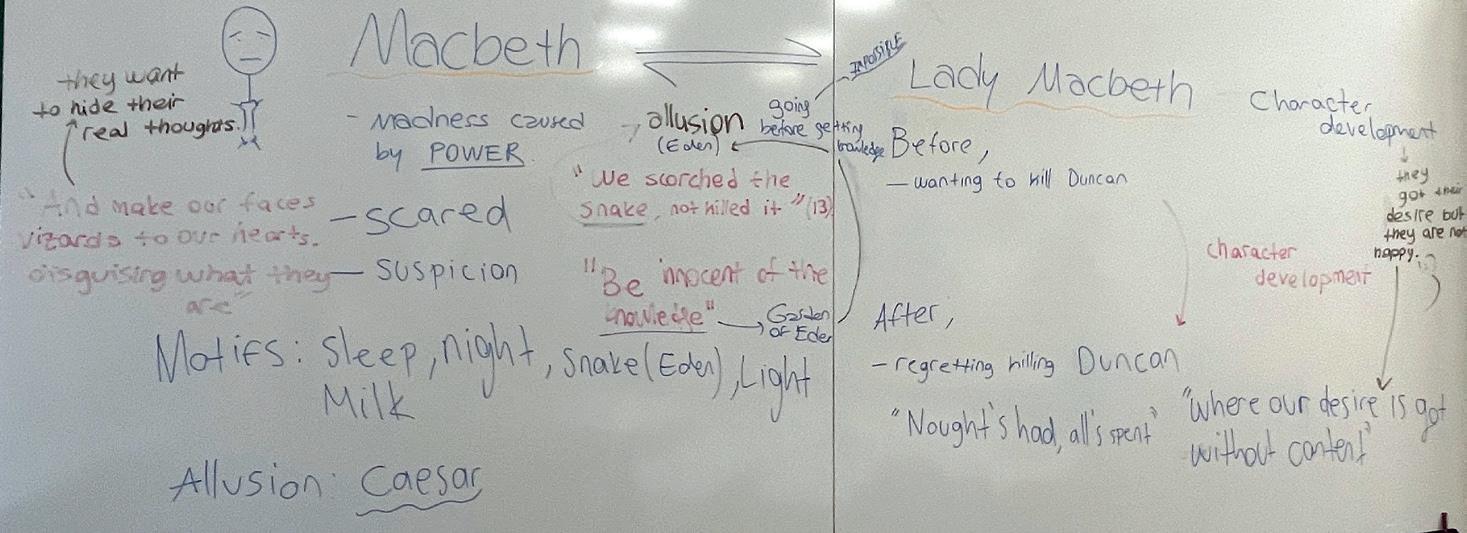 Macbeth
they want
to hide their
real thoughts.
- Madness caused
by POWER.
"And make our faces
vizards to our hearts.
disguising what they
are"
- scared
- suspicion
allusion
(Eden)
going
before getting
knowledge
IMPOSSIBLE
"We scorched the
snake, not killed it" (13)
"Be innocent of the
knowledge"
Garden
of Eden
Motifs: Sleep, night, Snake (Eden), Light
Milk
Allusion: Caesar
Lady Macbeth
Before,
- wanting to kill Duncan
character
development
After,
- regretting killing Duncan
"Nought's had, all's spent"
"where our desire is got
without content"
Character
development
they
got their
desire but
they are not
happy.